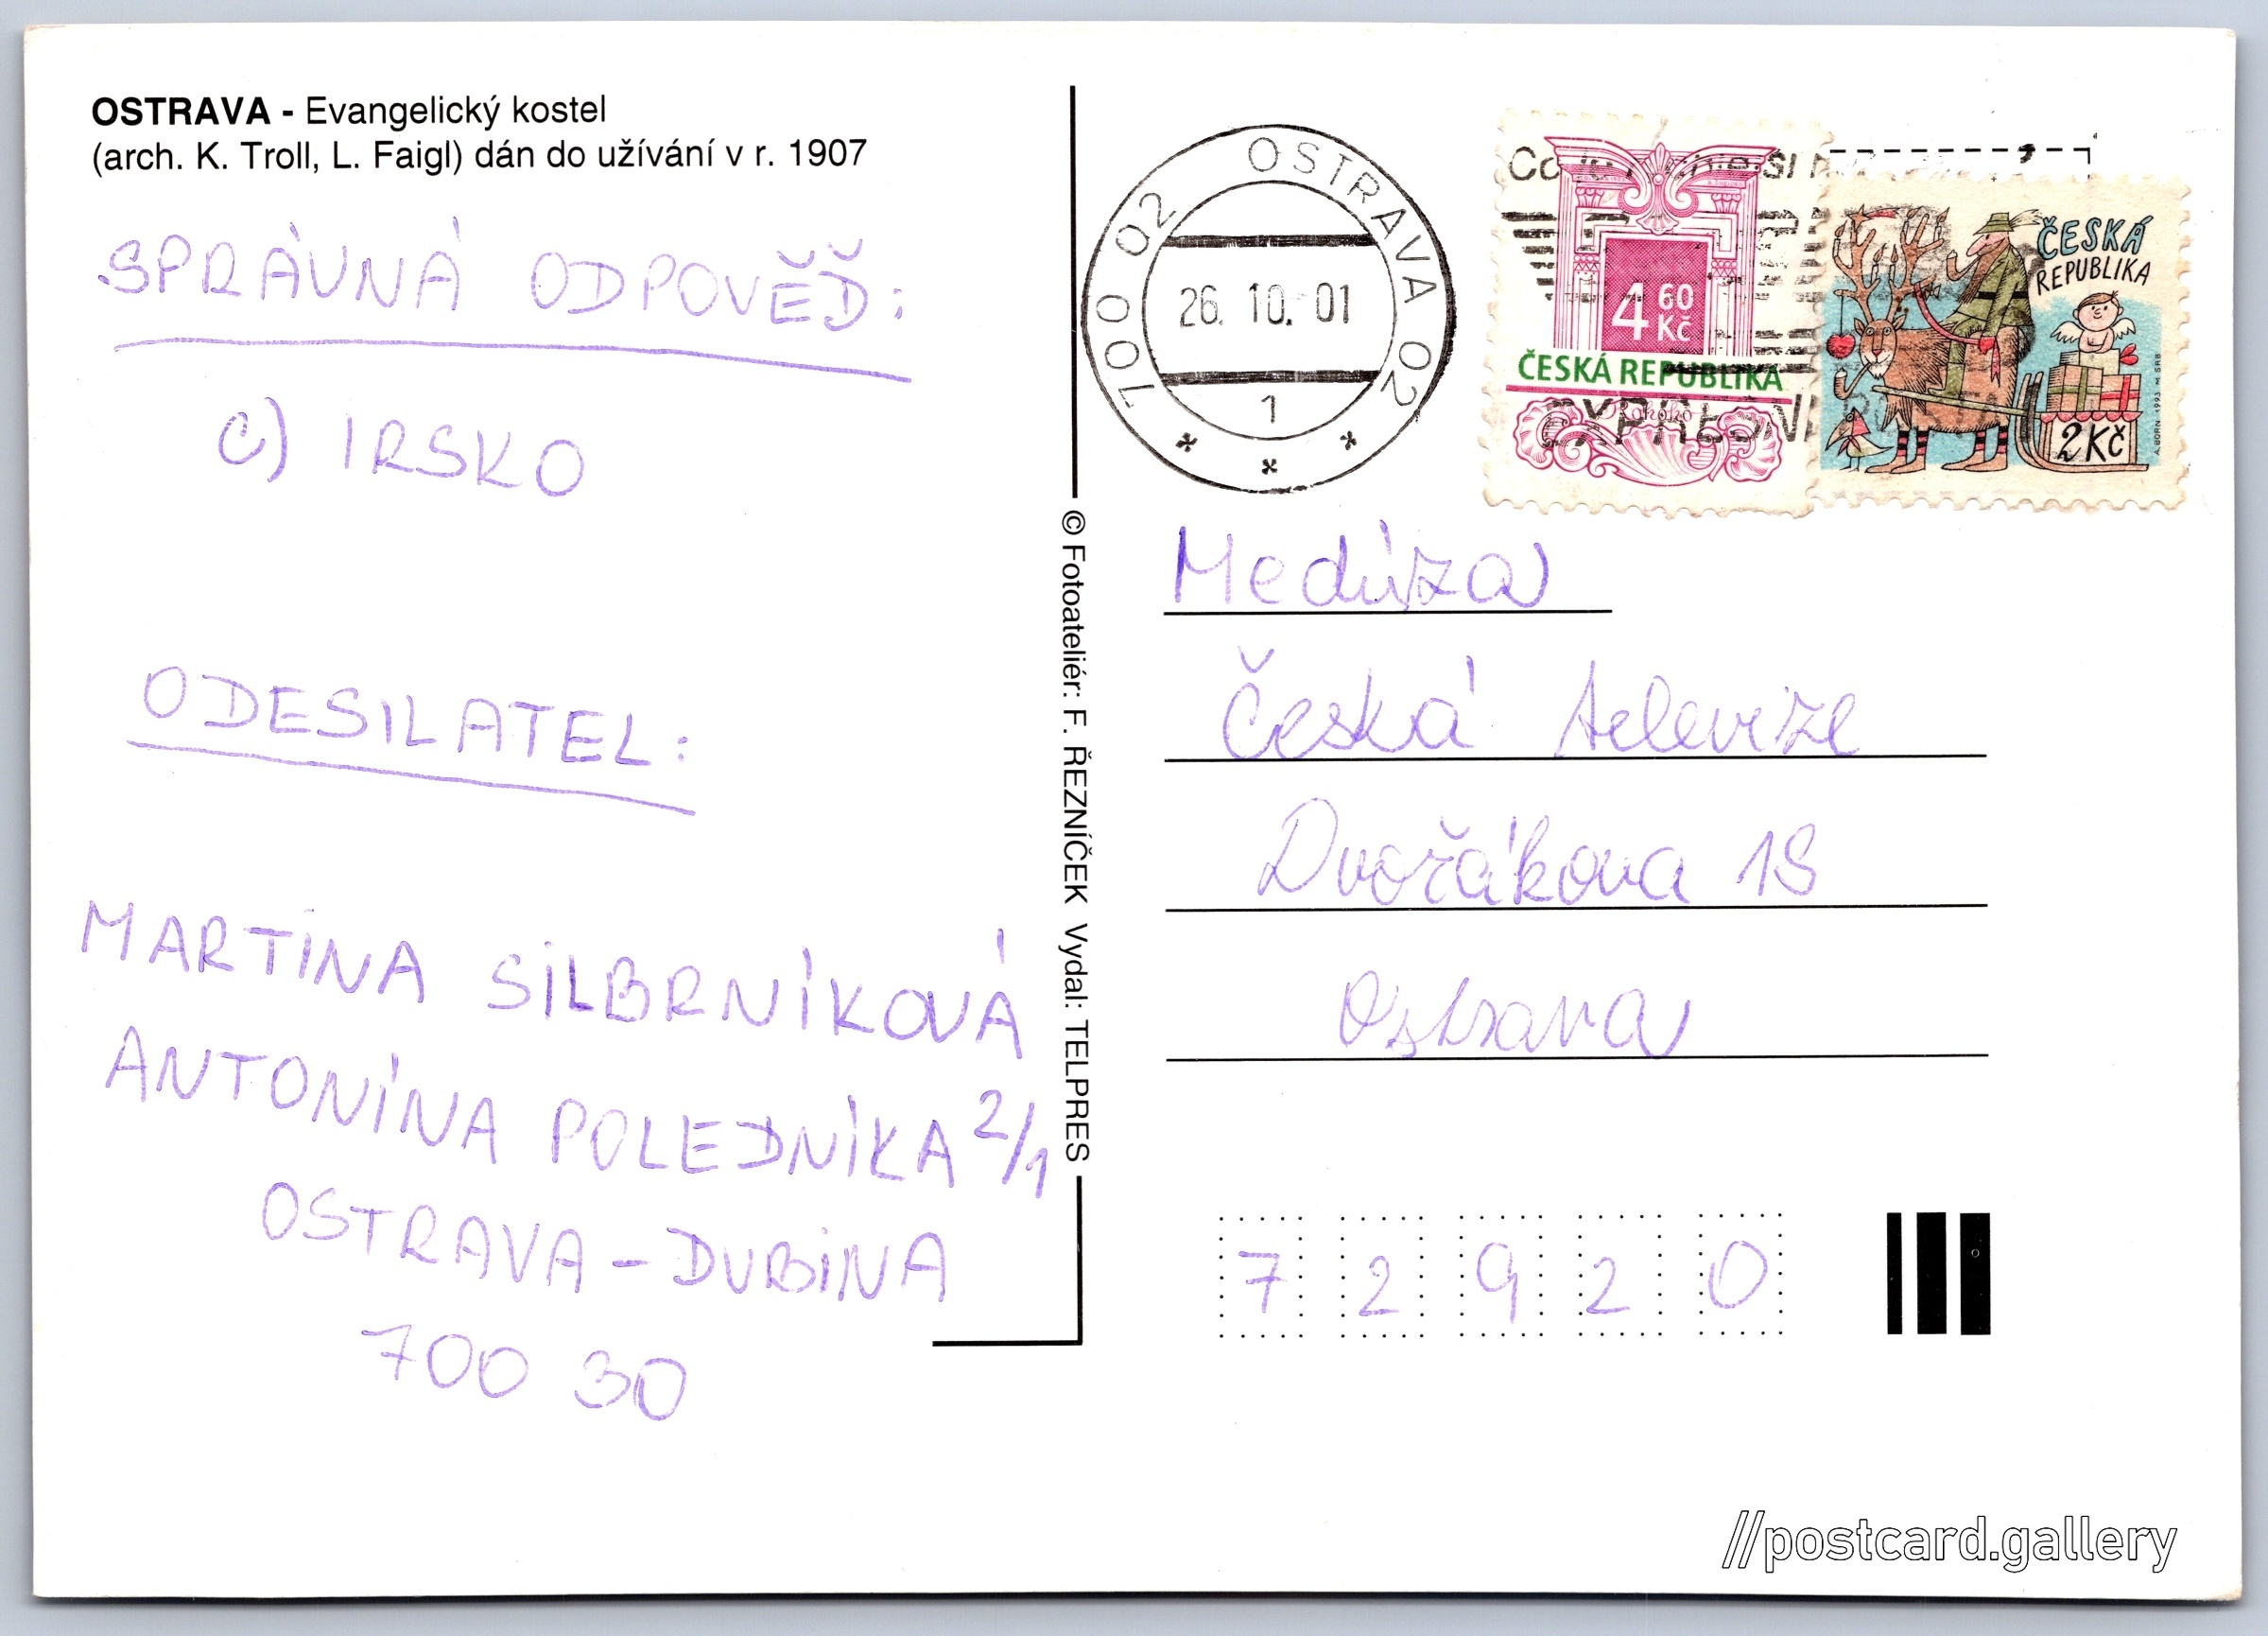 OSTRAVA - Evangelický kostel
(arch. K. Troll, L. Faigl) dán do užívání v r. 1907
SPRÁVNÁ ODPOVĚĎ:
c) IRSKO
ODESILATEL:
MARTINA SILBRNÍKOVÁ
ANTONÍNA POLEDNÍKA 2/1
OSTRAVA - DUBINA
700 30
© Fotoateliér: F. ŘEZNÍČEK Vydal: TELPRES
700 02 OSTRAVA 02
26. 10. 01
1
Co je
4 60 Kč
ČESKÁ REPUBLIKA
Rokoko
ČESKÁ
REPUBLIKA
2 Kč
A. BORN 1993 M. SRB
Medúza
Česká televize
Dvořákova 18
Ostrava
7 2 9 2 0
//postcard.gallery